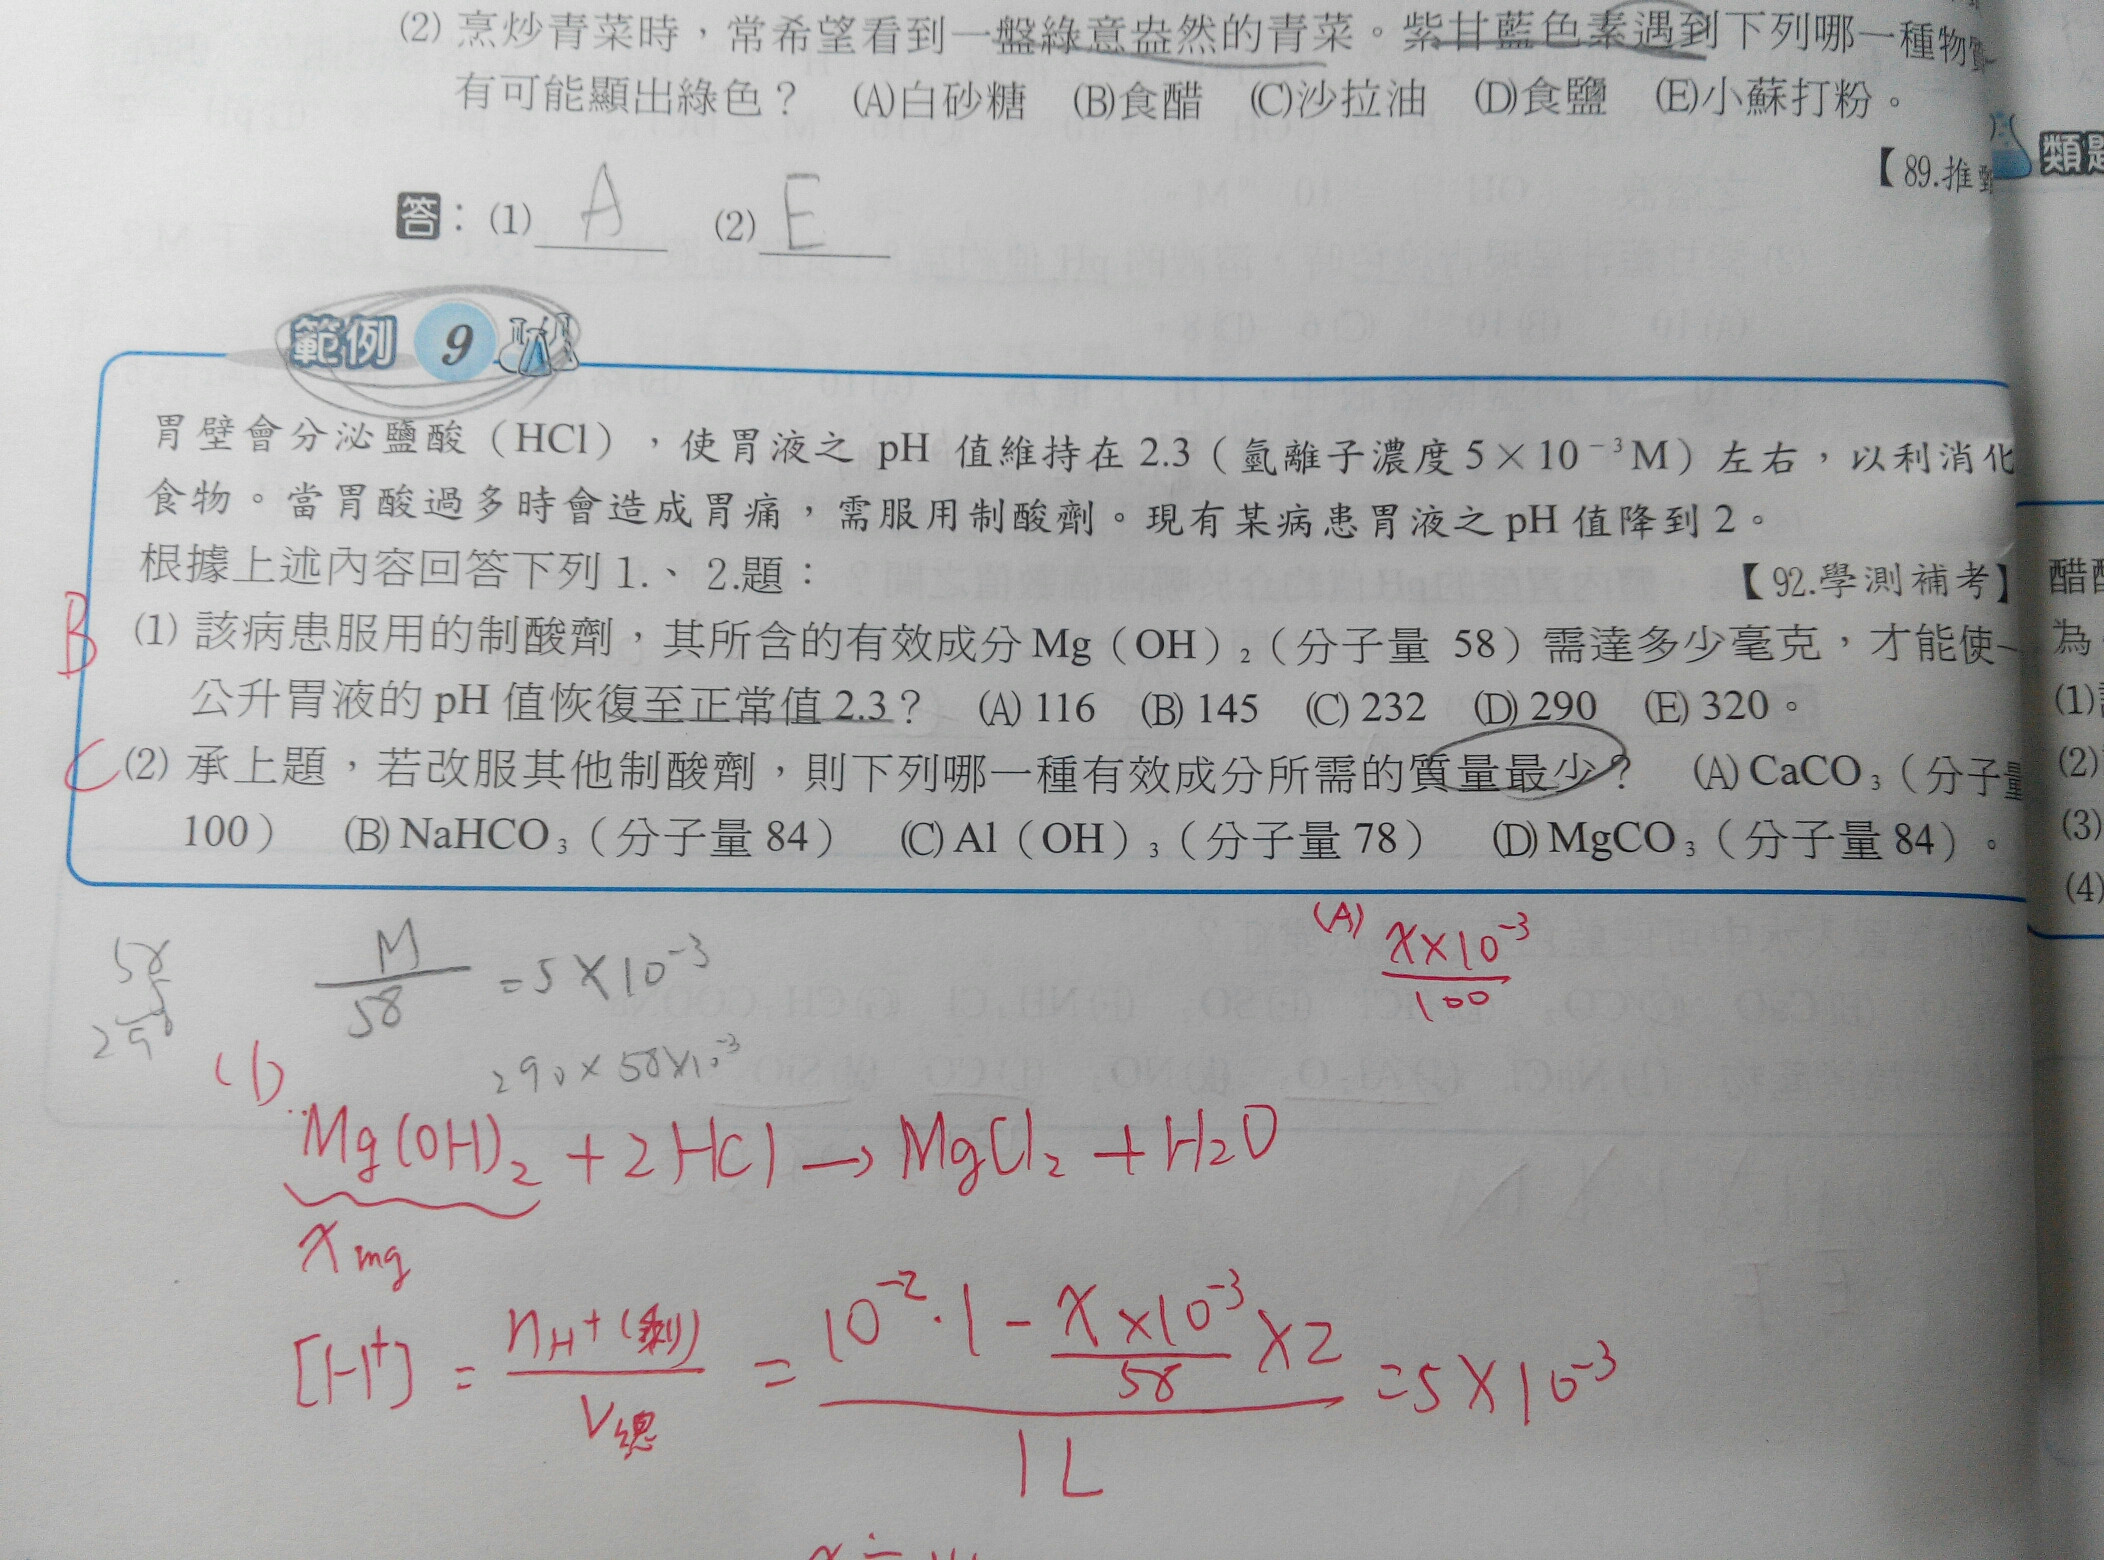 (2) 烹炒青菜時，常希望看到一盤綠意盎然的青菜。紫甘藍色素遇到下列哪一種物質
有可能顯出綠色？ (A)白砂糖 (B)食醋 (C)沙拉油 (D)食鹽 (E)小蘇打粉。
【89.推甄
類題
答：(1) A (2) E
範例 9
胃壁會分泌鹽酸（HCl），使胃液之 pH 值維持在 2.3（氫離子濃度 5×10⁻³M）左右，以利消化
食物。當胃酸過多時會造成胃痛，需服用制酸劑。現有某病患胃液之 pH 值降到 2。
根據上述內容回答下列 1.、2.題：
【92.學測補考】
B (1) 該病患服用的制酸劑，其所含的有效成分 Mg（OH）₂（分子量 58）需達多少毫克，才能使一
公升胃液的 pH 值恢復至正常值 2.3？ (A) 116 (B) 145 (C) 232 (D) 290 (E) 320。
C (2) 承上題，若改服其他制酸劑，則下列哪一種有效成分所需的質量最少？ (A) CaCO₃（分子量
100） (B) NaHCO₃（分子量 84） (C) Al（OH）₃（分子量 78） (D) MgCO₃（分子量 84）。
醋
為
(1)
(2)
(3)
(4)
58
5
290
M/58 = 5×10⁻³
290×58×10⁻³
(A) x×10⁻³/100
(1)
Mg(OH)₂ + 2HCl → MgCl₂ + H₂O
x mg
[H⁺] = nH⁺(剩)/V總 = (10⁻²·1 − x×10⁻³/58 ×2)/1L = 5×10⁻³